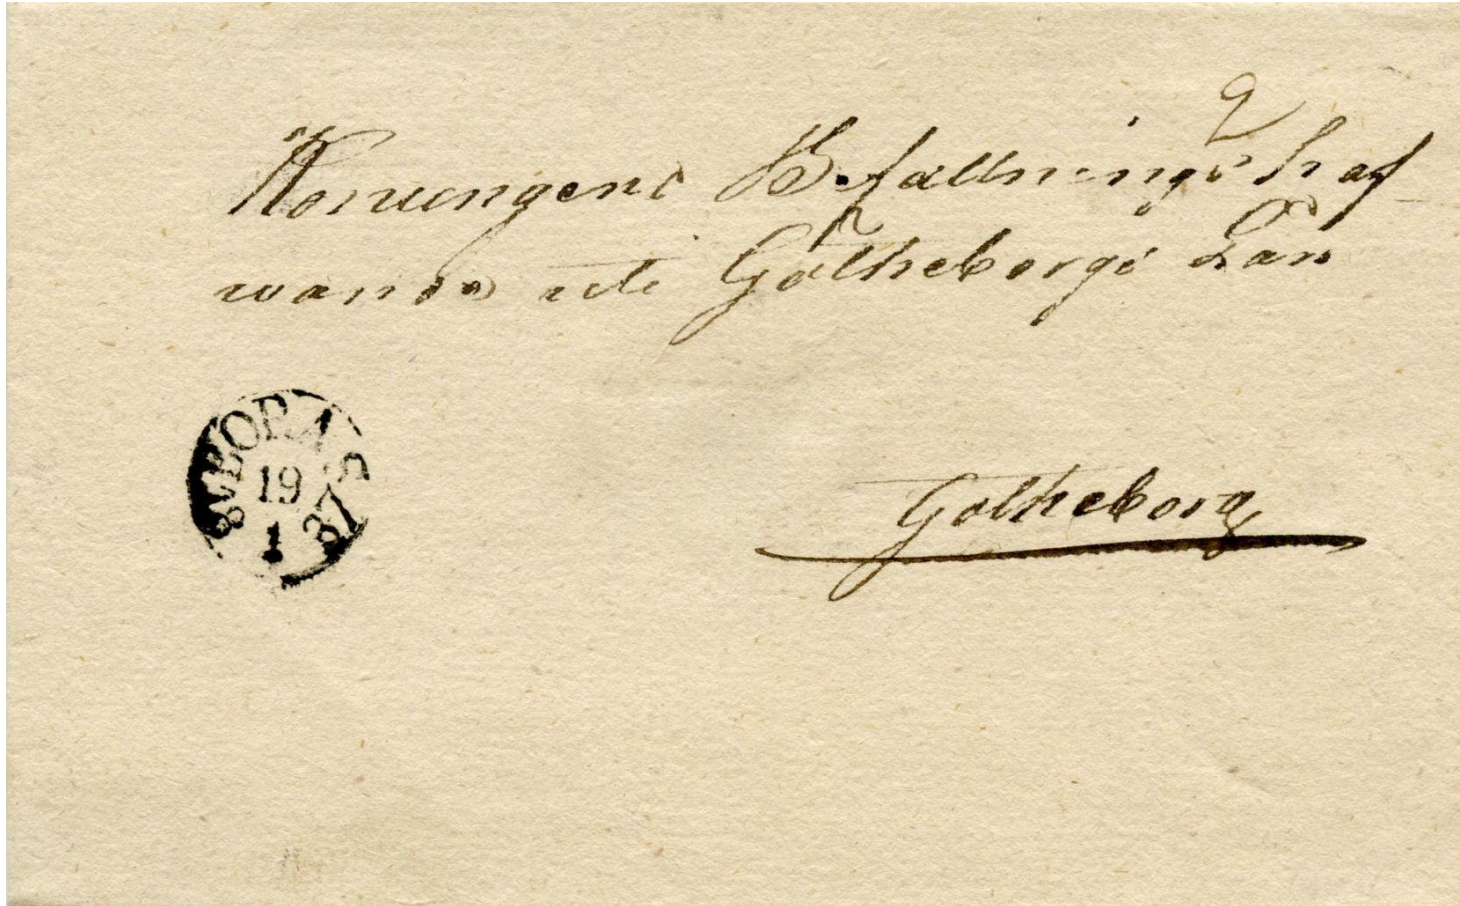 2
Konungens Befallningshaf
wande uti Götheborgs Län
BORÅS
19
1
1837
Götheborg